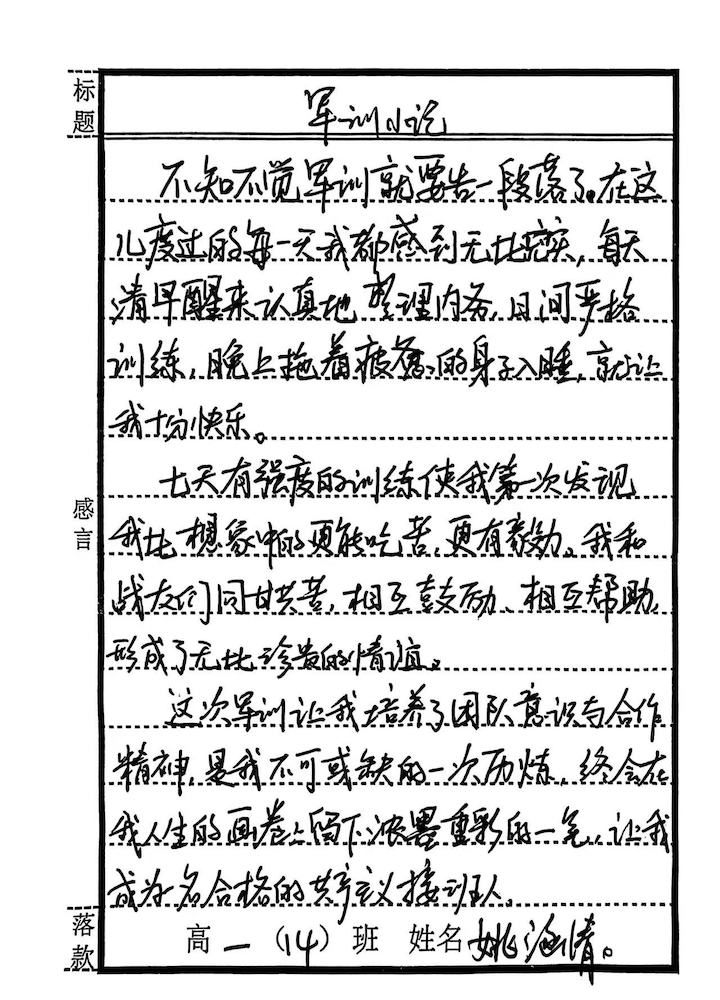 标题
军训小记
不知不觉军训就要告一段落了。在这
儿度过的每一天我都感到无比充实，每天
清早醒来认真地整理内务，日间严格
训练，晚上拖着疲惫的身子入睡，就让
我十分快乐。
七天有强度的训练使我第一次发现
感言
我比想象中的更能吃苦，更有毅力。我和
战友们同甘共苦，相互鼓励、相互帮助，
形成了无比珍贵的情谊。
这次军训让我培养了团队意识与合作
精神，是我不可或缺的一次历炼，终会在
我人生的画卷上留下浓墨重彩的一笔，让我
成为一名合格的共产主义接班人。
落款
高一（14）班 姓名 姚涵情。